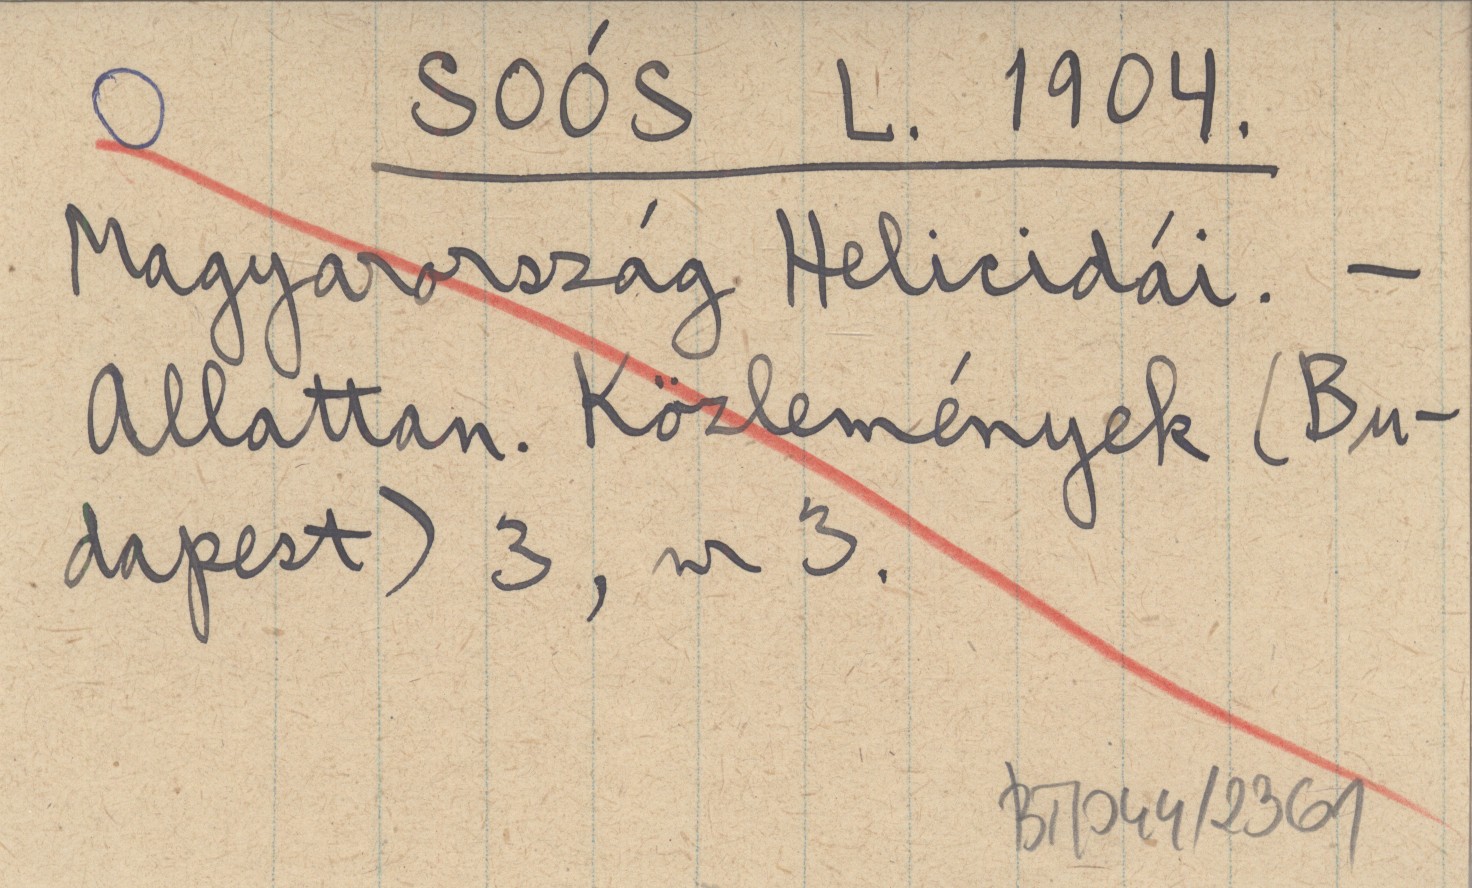 SOÓS L. 1904.
Magyarország Helicidái. —
Allattan. Közlemények (Bu-
dapest) 3, nr 3.
BT/044/2361